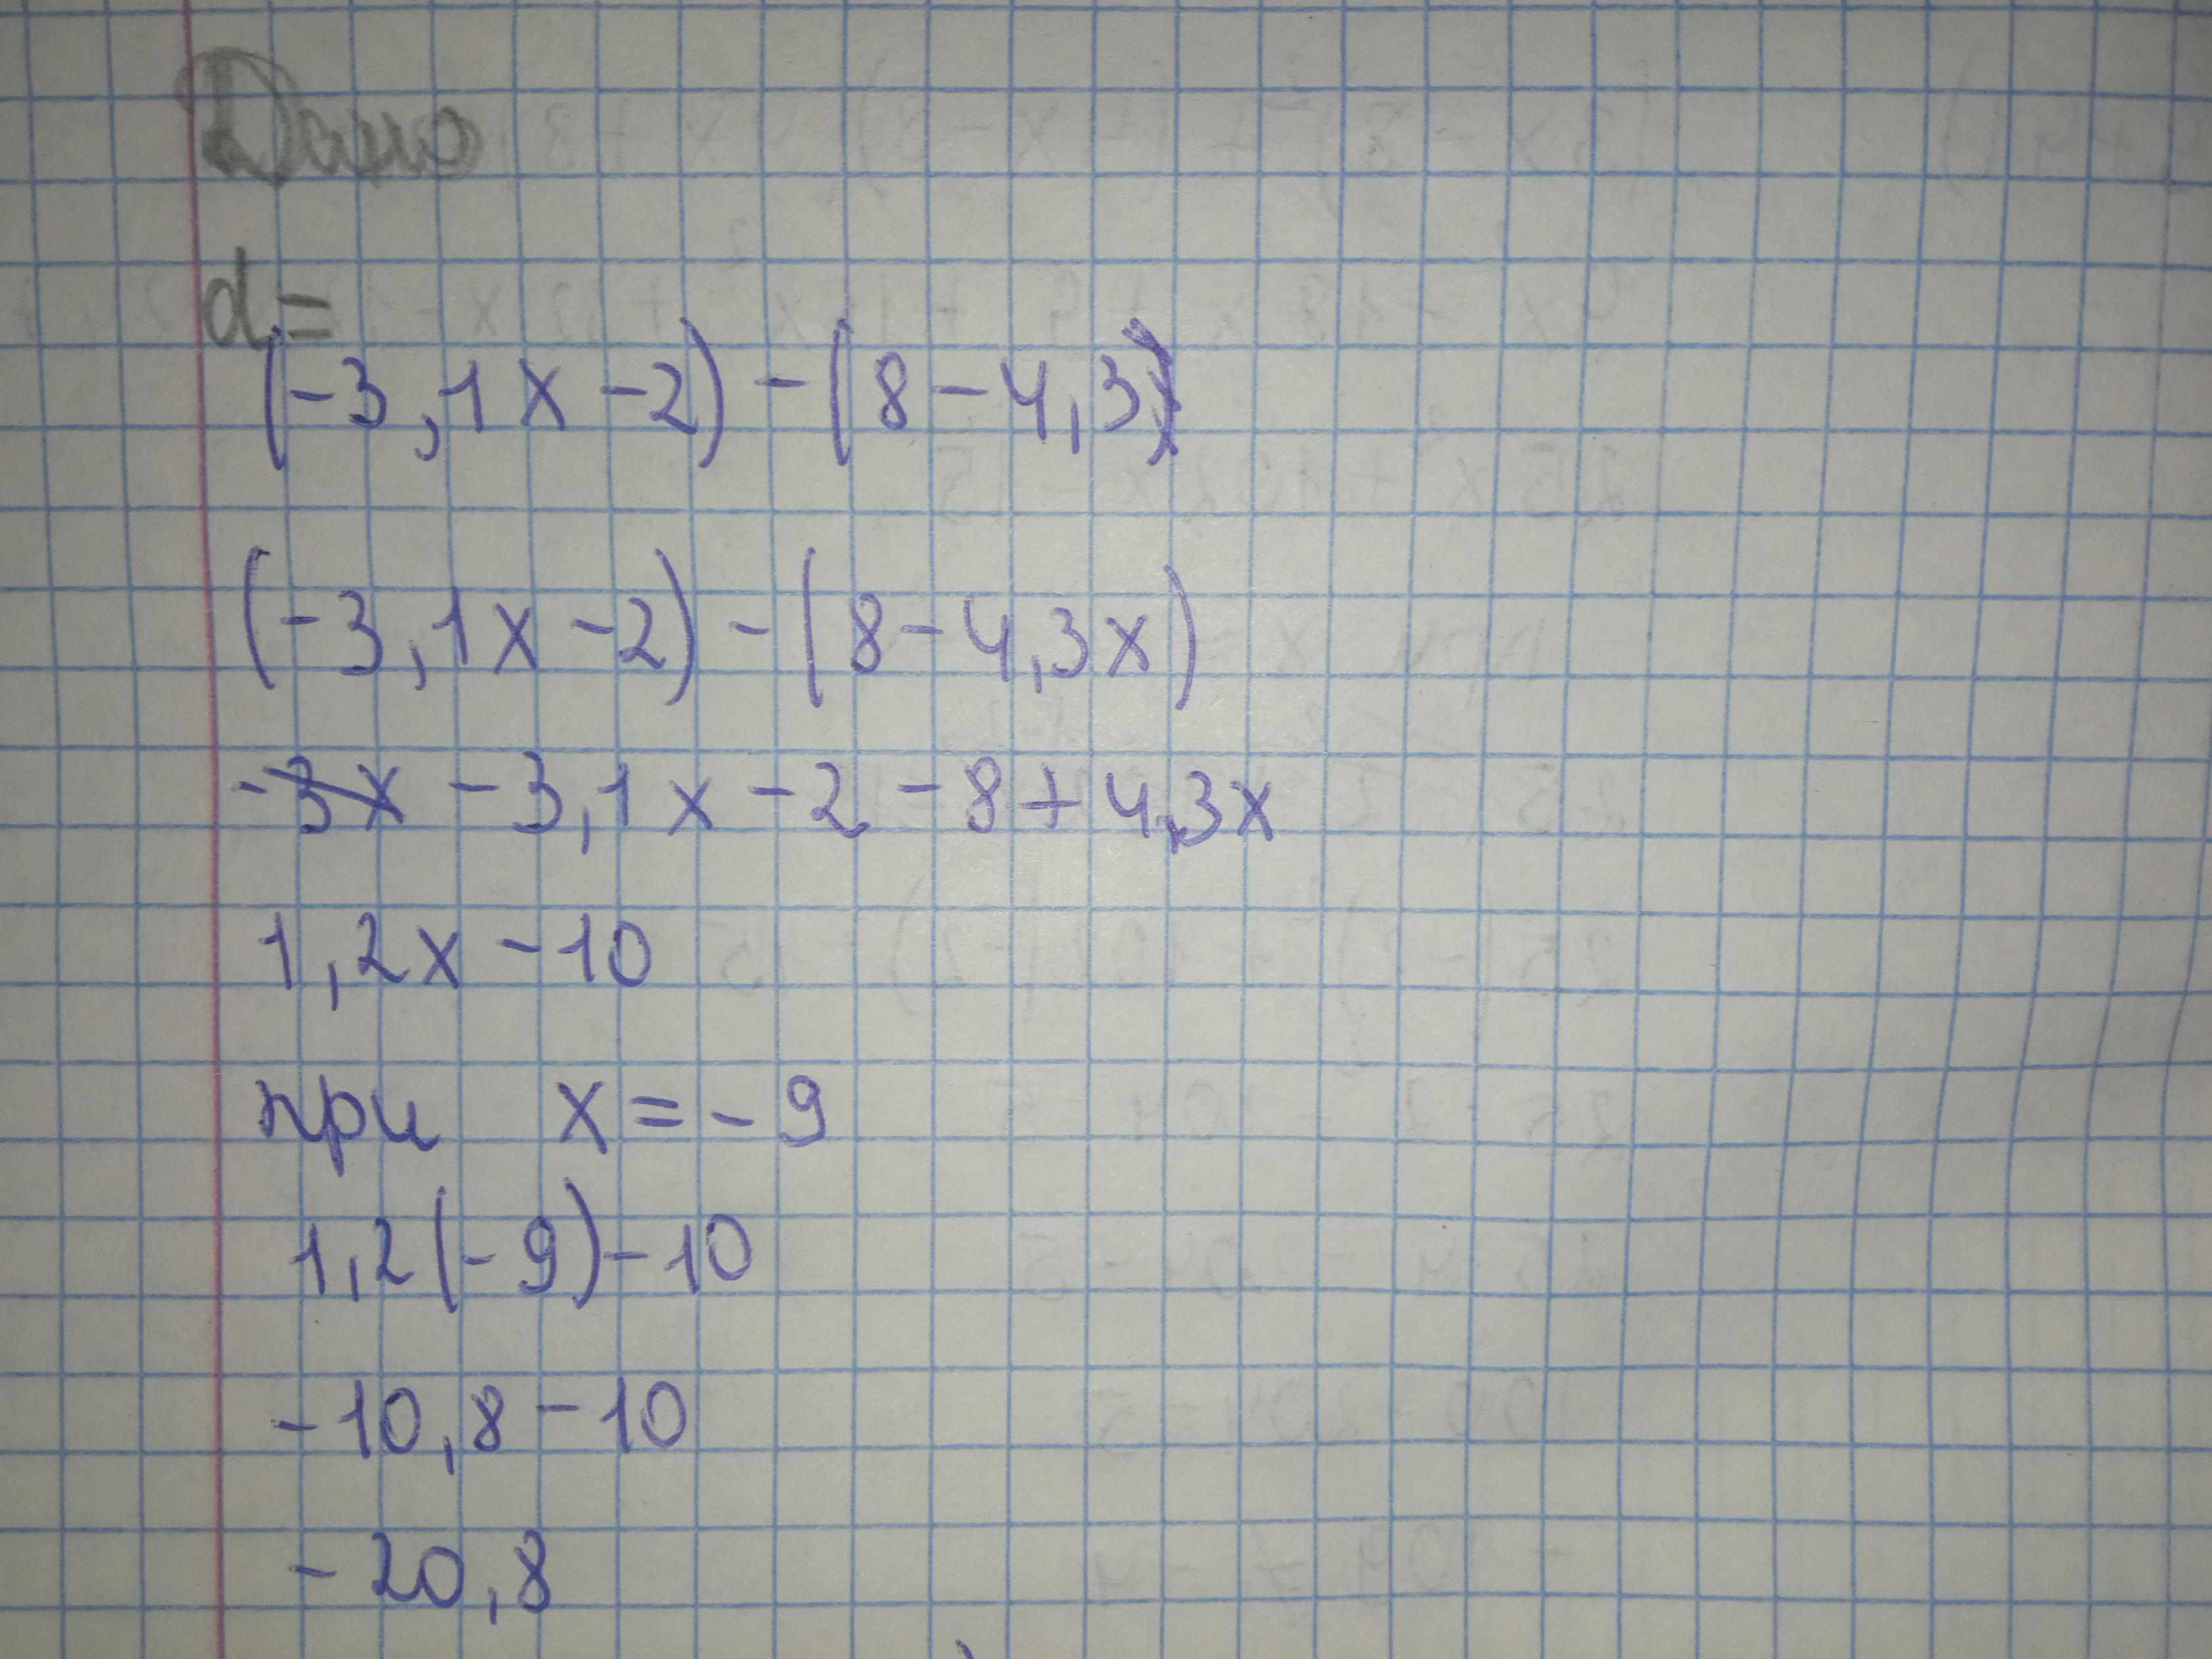 Дано
d =
(-3,1x -2) - (8 - 4,3)
(-3,1x -2) - (8 - 4,3x)
-3x -3,1x -2 -8 + 4,3x
1,2x -10
при x = -9
1,2(-9) -10
-10,8 -10
-20,8